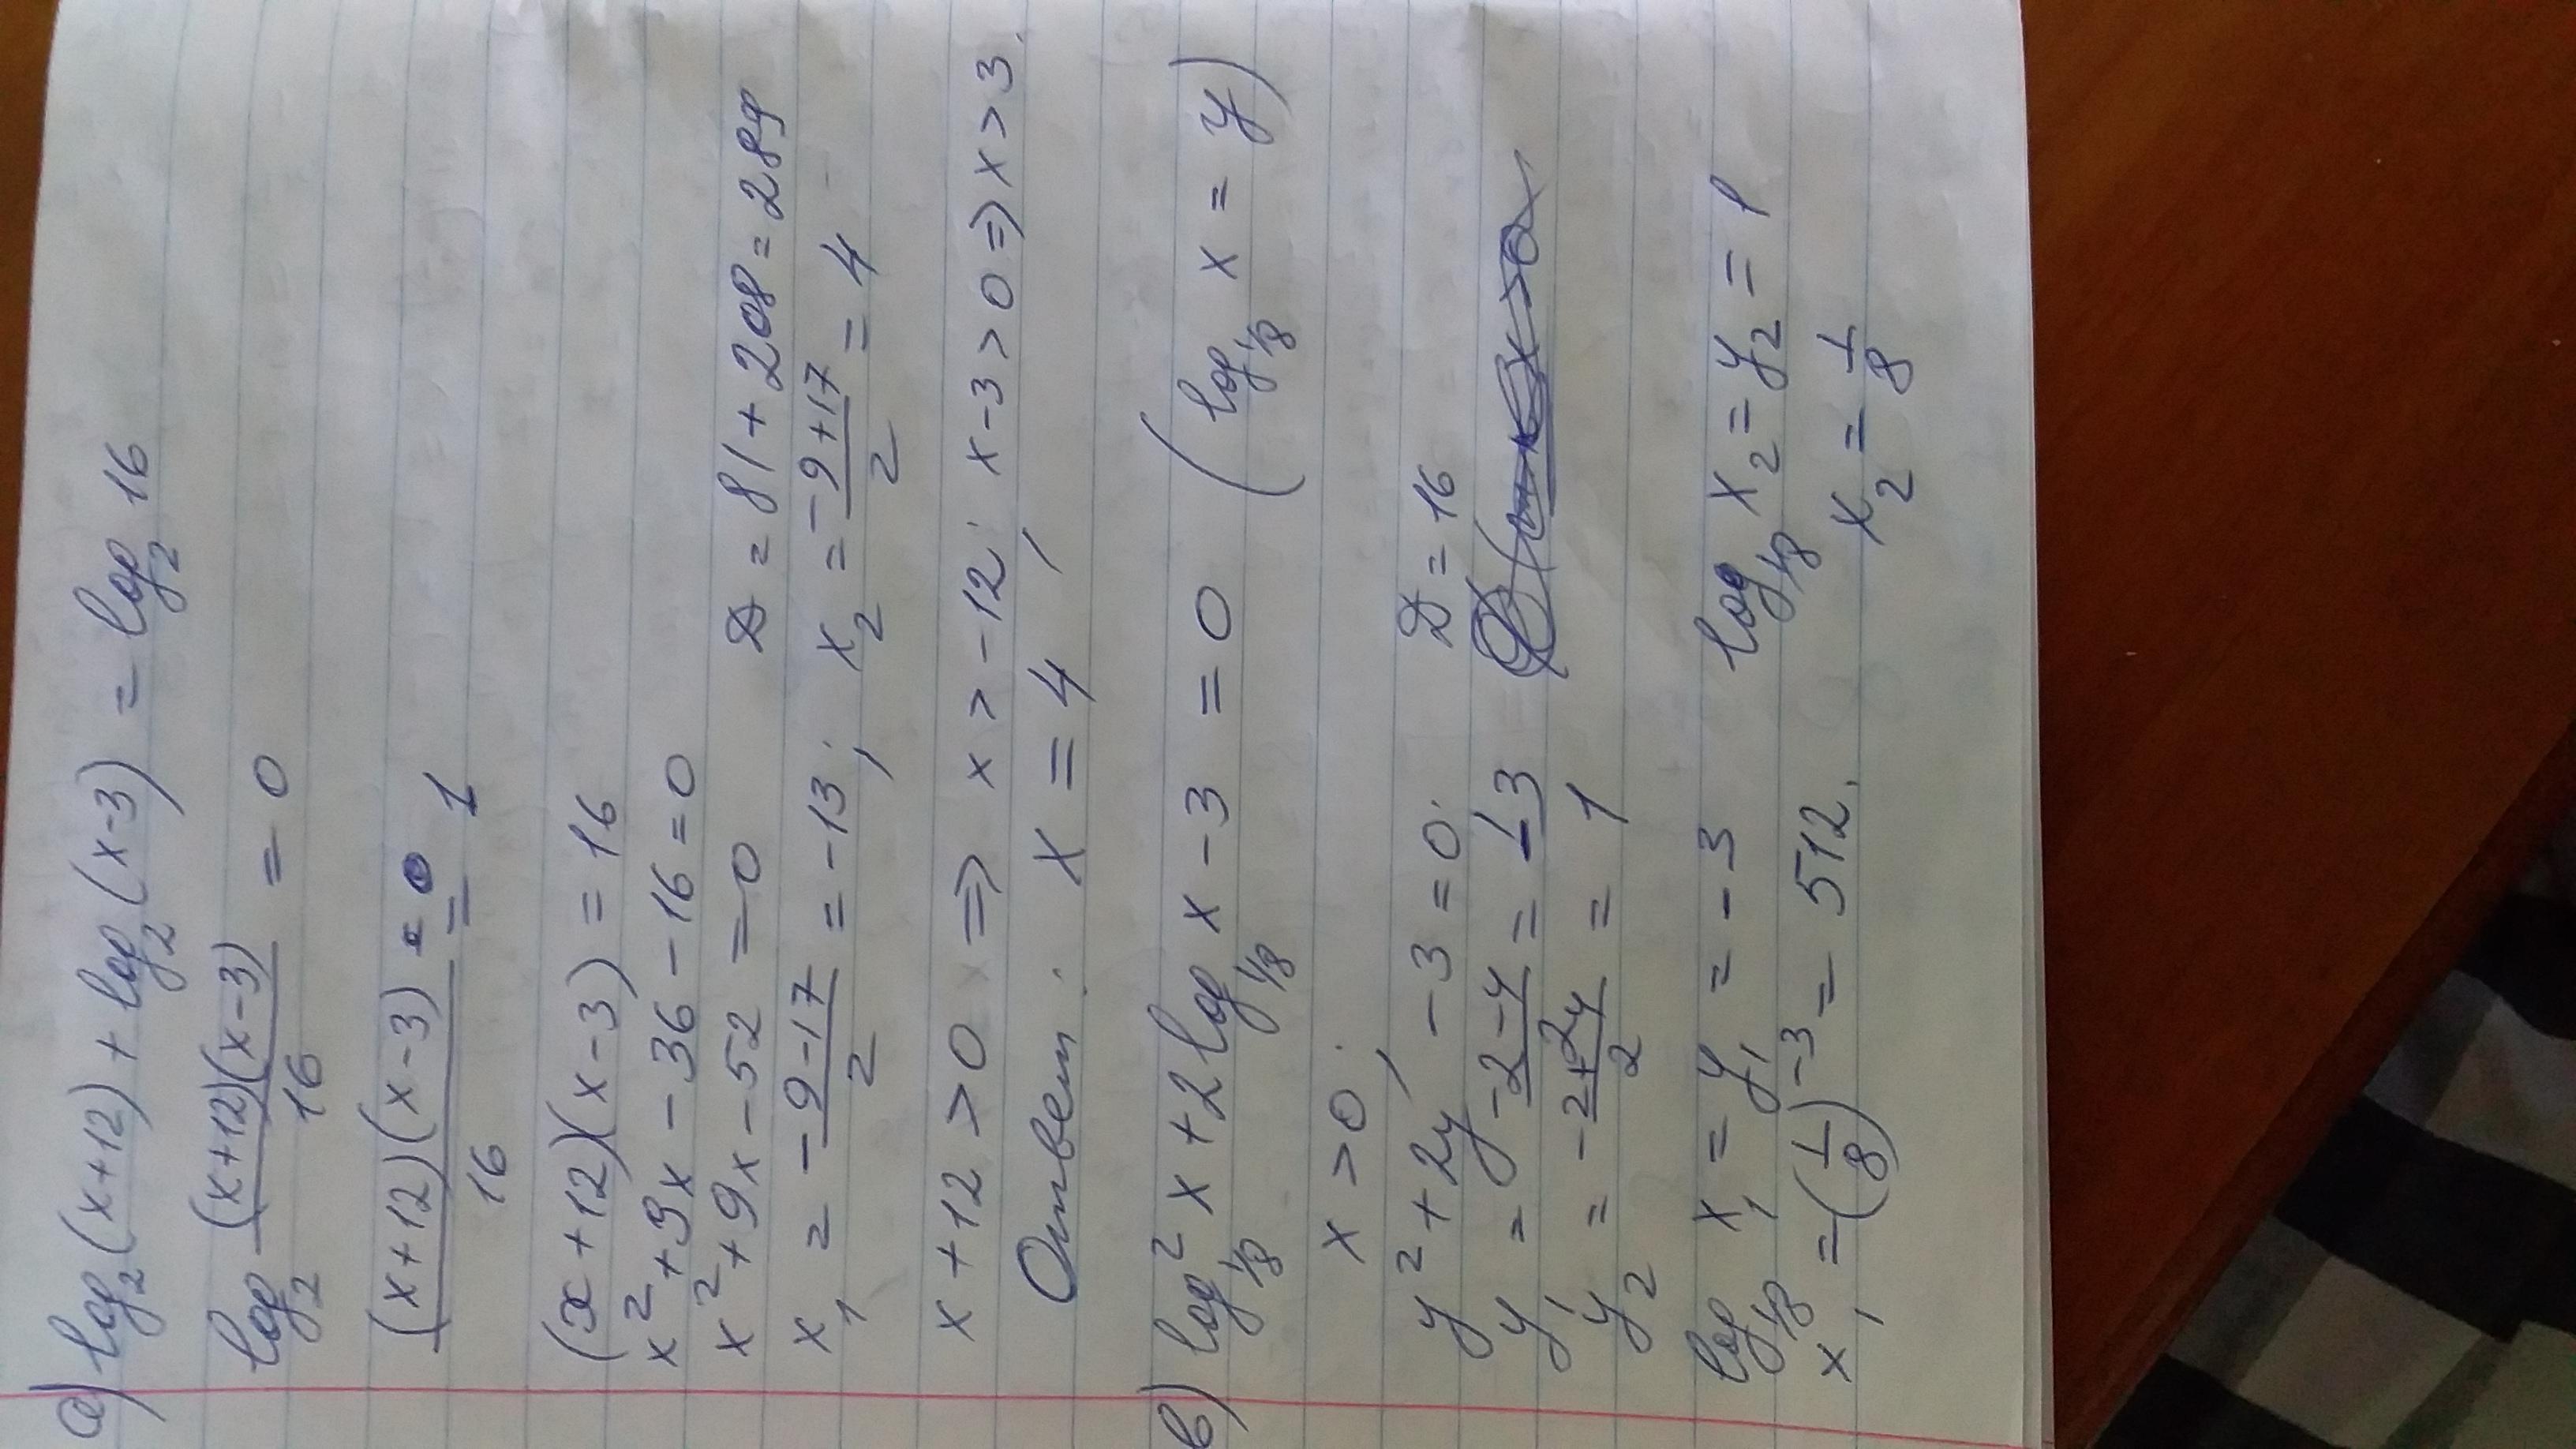 а) log₂(x+12) + log₂(x-3) = log₂ 16
log₂ (x+12)(x-3)/16 = 0
(x+12)(x-3)/16 = 1
(x+12)(x-3) = 16
x² + 9x - 36 - 16 = 0
x² + 9x - 52 = 0 D = 81 + 208 = 289
x₁ = -9-17/2 = -13; x₂ = -9+17/2 = 4
x + 12 > 0 ⇒ x > -12; x-3 > 0 ⇒ x > 3.
Ответ: x = 4
в) log²₁/₈ x + 2 log₁/₈ x - 3 = 0 (log₁/₈ x = y)
x > 0;
y² + 2y - 3 = 0. D = 16
y₁ = -2-4/2 = -3
y₂ = -2+4/2 = 1
log₁/₈ x₁ = y₁ = -3 log₁/₈ x₂ = y₂ = 1
x₁ = (1/8)⁻³ = 512. x₂ = 1/8